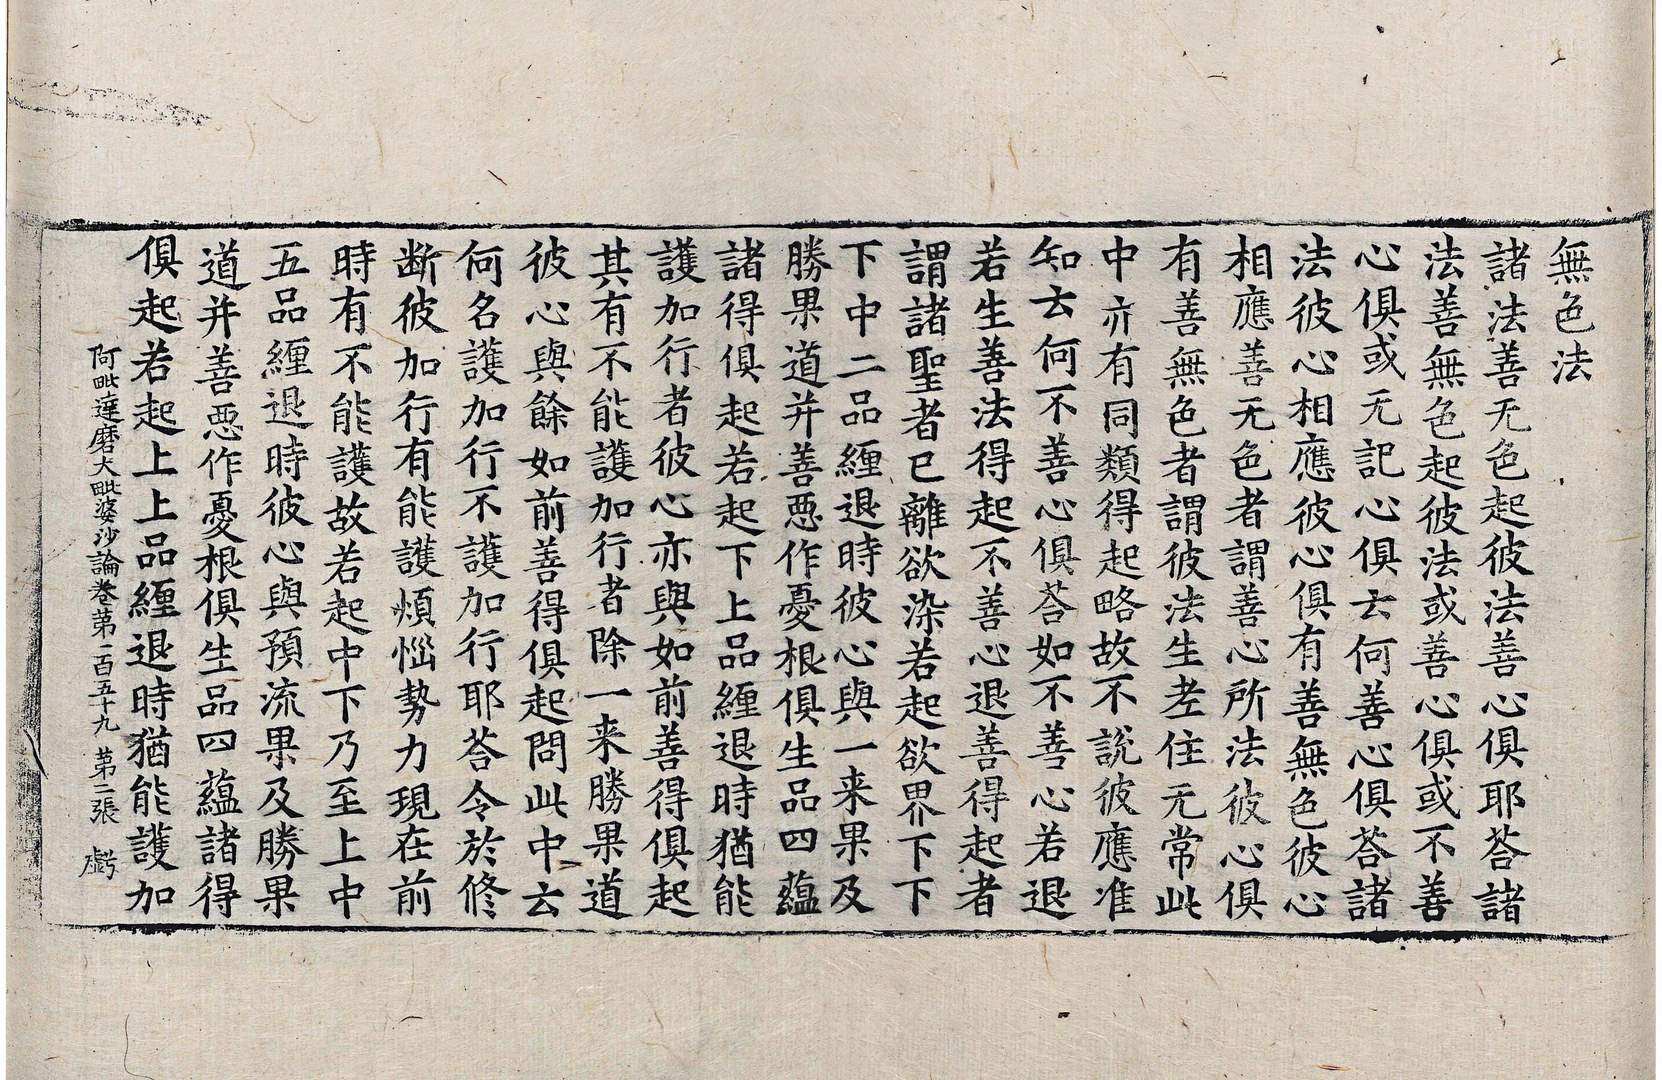 無色法
諸法善无色起彼法善心俱耶荅諸
法善無色起彼法或善心俱或不善
心俱或无記心俱云何善心俱荅諸
法彼心相應彼心俱有善無色彼心
相應善无色者謂善心所法彼心俱
有善無色者謂彼法生老住无常此
中亦有同類得起略故不說彼應准
知云何不善心俱荅如不善心若退
若生善法得起不善心退善得起者
謂諸聖者已離欲染若起欲界下下
下中二品纏退時彼心與一来果及
勝果道并善惡作憂根俱生品四蘊
諸得俱起若起下上品纏退時猶能
護加行者彼心亦與如前善得俱起
其有不能護加行者除一来勝果道
彼心與餘如前善得俱起問此中云
何名護加行不護加行耶荅令於修
断彼加行有能護煩惱勢力現在前
時有不能護故若起中下乃至上中
五品纏退時彼心與預流果及勝果
道并善惡作憂根俱生品四蘊諸得
俱起若起上上品纏退時猶能護加
阿毗達磨大毗婆沙論卷第一百五十九 第二張 虧